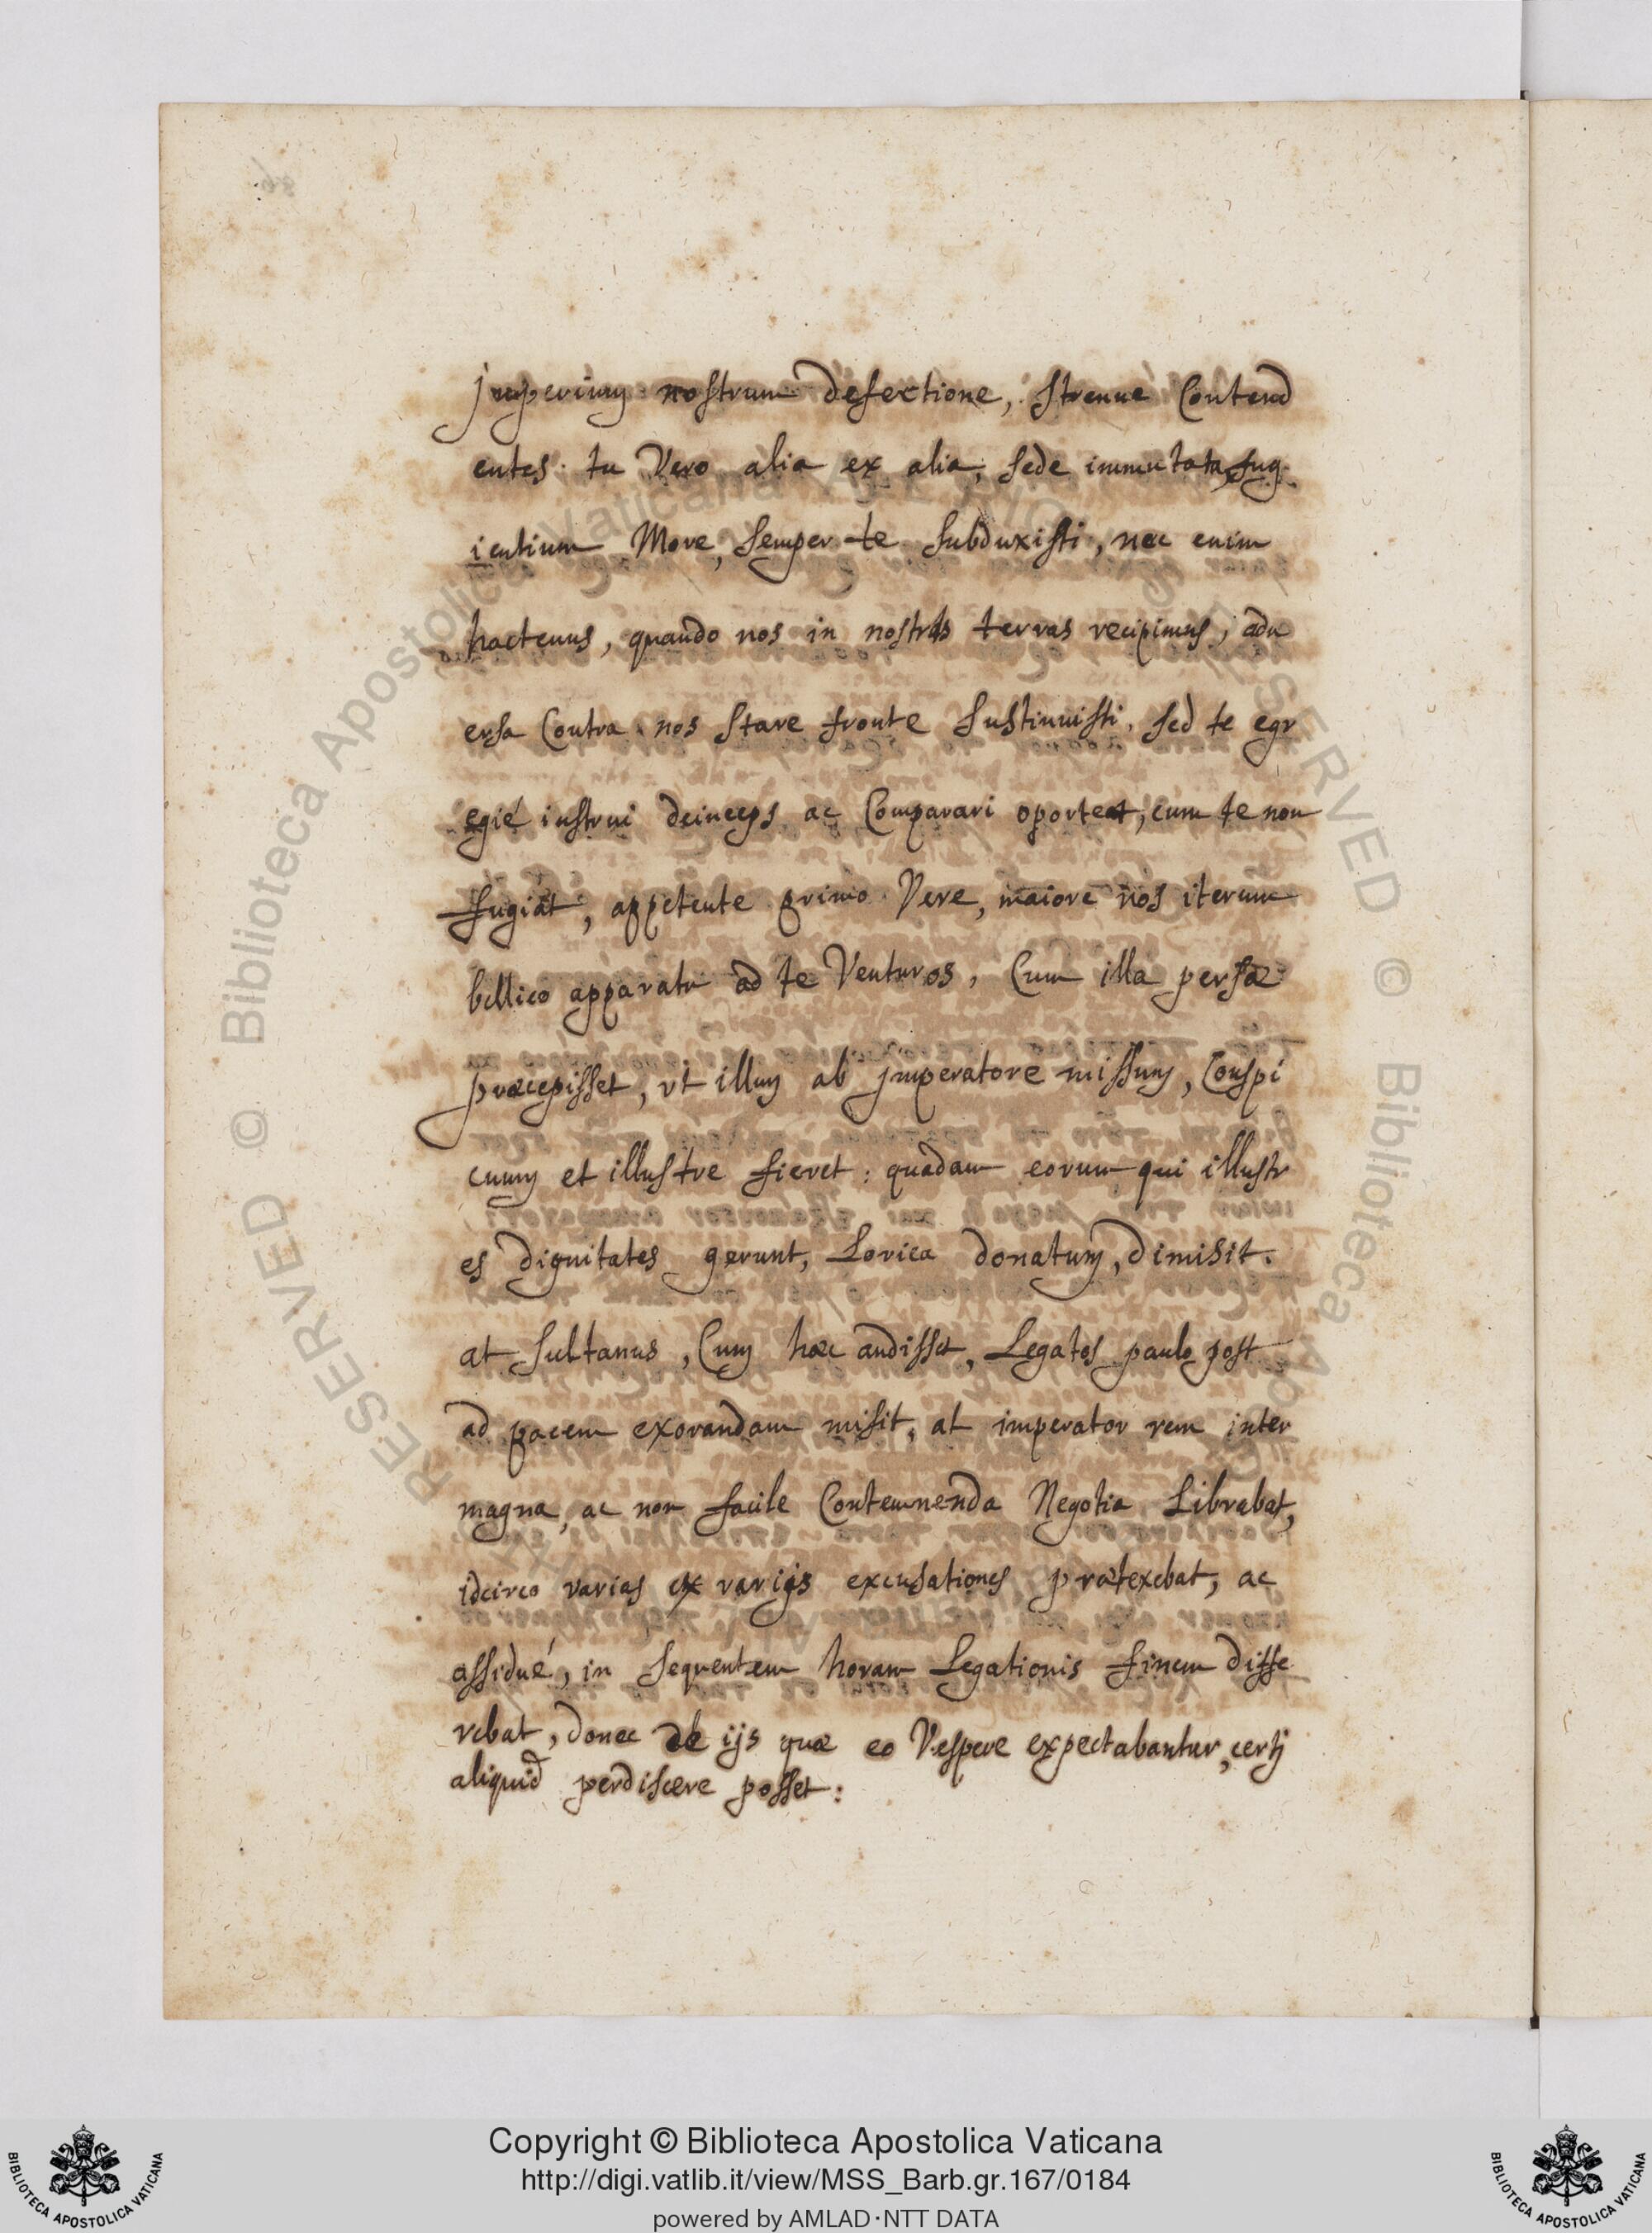 jmperium nostrum defectione, strenue Contend
entes. tu Vero alia ex alia, sede immutata, fug
ientium More, semper te subduxisti, nec enim
hactenus, quando nos in nostras terras recipimus, adu
ersa Contra nos stare fronte sustinuisti. sed te egr
egié instrui deinceps ac Comparari oporteat, cum te non
fugiat, appetente primo Vere, maiore nos iterum
bellico apparatu ad te Venturos. Cum illa persæ
præcepisset, vt illum ab jmperatore missum, Conspi
cuum et illustre fieret: quadam eorum qui illustr
es dignitates gerunt, Lorica donatum, dimisit.
at Sultanus, Cum hæc audisset, Legatos paulo post
ad pacem exorandam misit, at imperator rem inter
magna, ac non facile Contemnenda Negotia Librabat,
idcirco varias ex varijs excusationes prætexebat, ac
assidué, in sequentem horam Legationis finem diffe
rebat, donec de ijs quæ eo Vespere expectabantur, certj
aliquid perdiscere posset:
RESERVED © Biblioteca Apostolica Vaticana
RESERVED © Biblioteca Apostolica
BIBLIOTECA APOSTOLICA VATICANA
Copyright © Biblioteca Apostolica Vaticana
http://digi.vatlib.it/view/MSS_Barb.gr.167/0184
powered by AMLAD·NTT DATA
BIBLIOTECA APOSTOLICA VATICANA